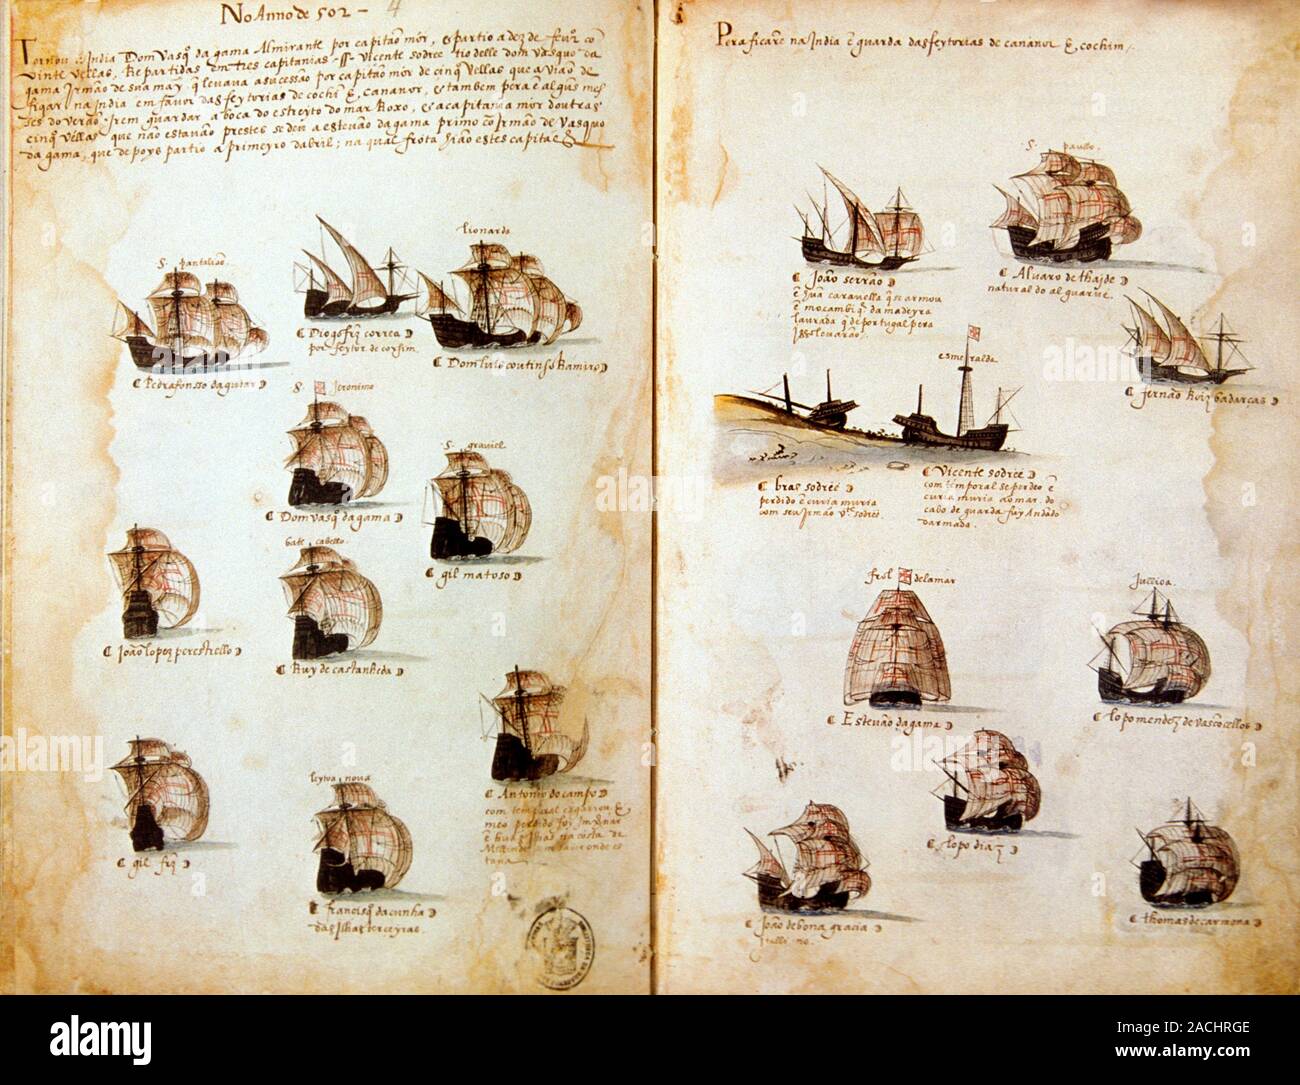 No Anno de 502 - 4
Tornou á India Dom Vasq̃ da gama Almirante por capitão mór, e partio a dez de feur.º cõ
vinte vellas, Repartidas em tres capitanias .ff. Vicente sodree tio delle dom vasquo da
gama Irmão de sua mãy q̃ leuaua a sucessão por capitão mór de cinq̃ Vellas que auião de
ficar na India em fauor das feytorias de cochĩ &, cananor, e tambem pera ẽ algũs mes
ses do verão Irem guardar a boca do estreito do mar Roxo, e a capitania mór doutras
cinq̃ vellas que não estauão prestes se deu a esteuão da gama primo cõ Irmão de Vasquo
da gama, que depoys partio a primeyro dabril; na qual frota hião estes capitãẽs
S. pantalião.
Pedrafonsso daguiar
Diogo frz̃ correa
por feytor de coxim.
lionarda
Dom luis coutinho Ramiro
S. Jeronimo
Dom Vasq̃ da gama
S. grauiel
gil matoso
João lopez perestrello
bate cabello.
Ruy de castanheda
Antonio do campo
com temporal esgarrou &
meo perdido foi Inuernar
gil frz̃
leytoa noua
francisq̃ da cunha
das Ilhas terceyras.
Pera ficarẽ na India ẽ guarda das feytorias de cananor &, cochim.
João serrão
ẽ hũa carauella q̃ se armou
ẽ mocambiq̃ da madeyra
laurada q̃ de portugal pera
Isso leuarão.
S. paullo.
Aluaro de thaide
natural do alguarue.
fernão Roiz badarças
esmeralda
bras sodreé
perdido ẽ curia muria
com seu Irmão vᵗᵉ sodreé.
Vicente sodreé
com temporal se perdeo ẽ
curia muria no mar do
cabo de guardafuy Andãdo
darmada.
frol delamar
Esteuão da gama
Jullioa.
lopo mendez de vascõcellos
lopo diaz
João de bona gracia
thomas de carmona
alamy
alamy
alamy
alamy
alamy stock photo
ACHRGE
www.alamy.com